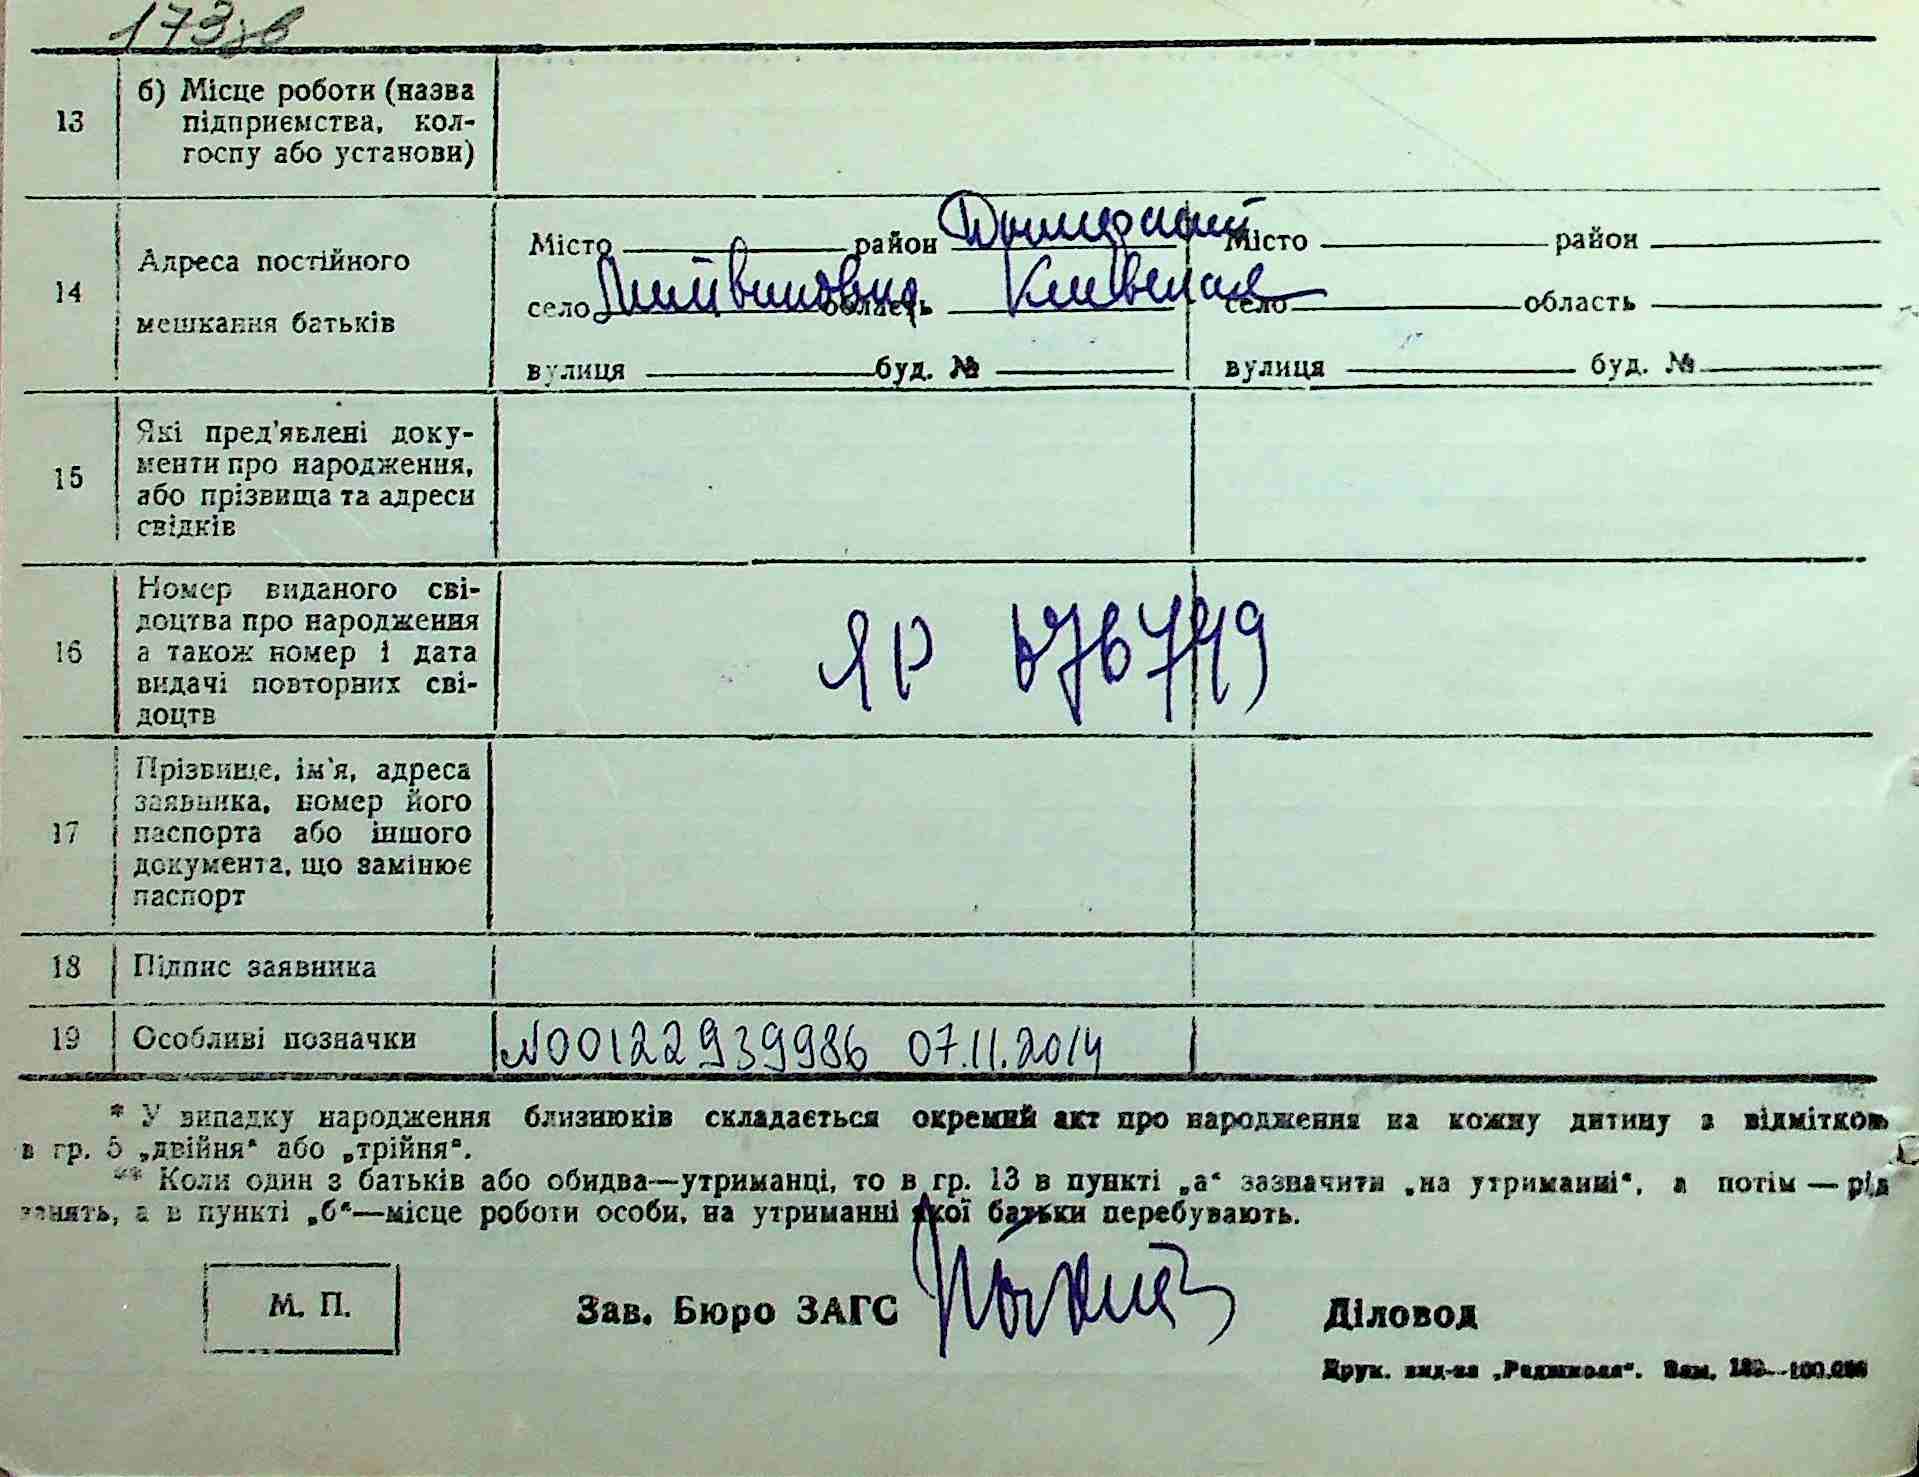 173зв
13
б) Місце роботи (назва
підприємства, кол-
госпу або установи)
14
Адреса постійного
мешкання батьків
Місто район Дымерский Місто район
село Литвиновка область Киевская село область
вулиця буд. № вулиця буд. №
15
Які пред'явлені доку-
менти про народження,
або прізвища та адреси
свідків
16
Номер виданого сві-
доцтва про народження
а також номер і дата
видачі повторних сві-
доцтв
ЯР 676749
17
Прізвище, ім'я, адреса
заявника, номер його
паспорта або іншого
документа, що замінює
паспорт
18 Підпис заявника
19 Особливі позначки N00122939986 07.11.2014
* У випадку народження близнюків складається окремий акт про народження на кожну дитину з відміткою
в гр. 5 „двійня“ або „трійня“.
** Коли один з батьків або обидва—утриманці, то в гр. 13 в пункті „а“ зазначити „на утриманні“, а потім — рід
занять, а в пункті „б“—місце роботи особи, на утриманні якої батьки перебувають.
М. П. Зав. Бюро ЗАГС Діловод
Друк. вид-ва „Радшкола“. Зам.